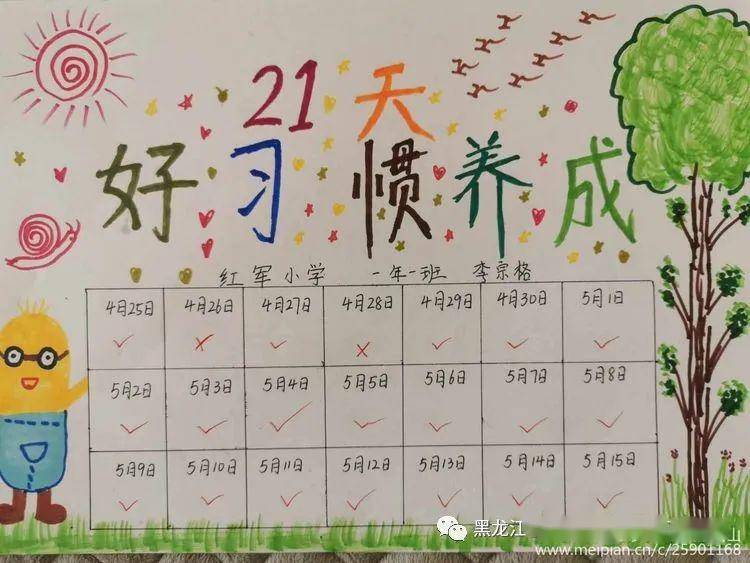 21天
好习惯养成
红军小学 一年一班 李京格
4月25日 4月26日 4月27日 4月28日 4月29日 4月30日 5月1日
✓ ✗ ✓ ✗ ✓ ✓ ✓
5月2日 5月3日 5月4日 5月5日 5月6日 5月7日 5月8日
✓ ✓ ✓ ✓ ✓ ✓ ✓
5月9日 5月10日 5月11日 5月12日 5月13日 5月14日 5月15日
✓ ✓ ✓ ✓ ✓ ✓ ✓
黑龙江
www.meipian.cn/c/25901168